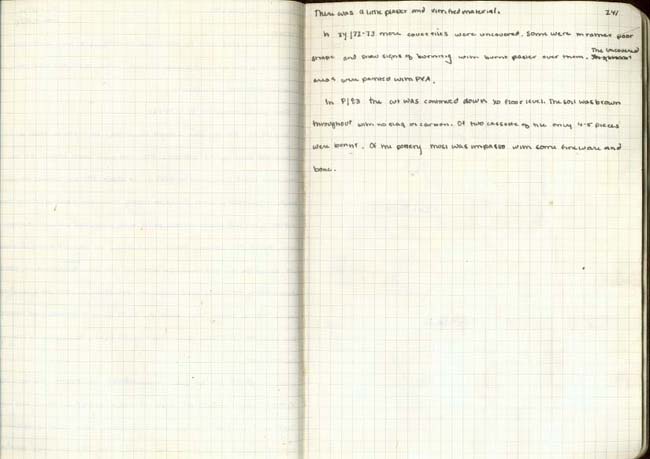 There was a little plaster and vitrified material. 241
In xy/22-23 more cover tiles were uncovered. Some were in rather poor
shape and show signs of burning with burnt plaster over them. The uncovered
areas were painted with PVA.
In P/23 the cut was continued down to floor level. The soil was brown
throughout with no slag or carbon. Of two cassette of tile only 4-5 pieces
were burnt. Of the pottery most was impasto with some fineware and
bone.